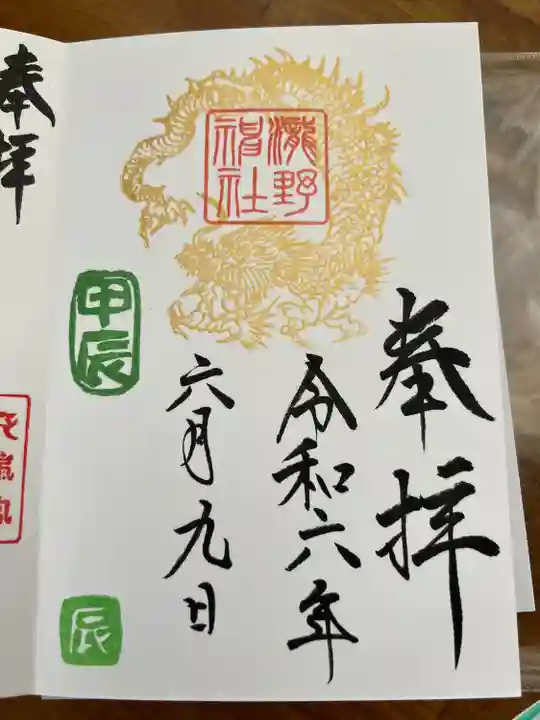 奉拝
令和六年
六月九日
瀧野
神社
甲辰
辰
奉拝